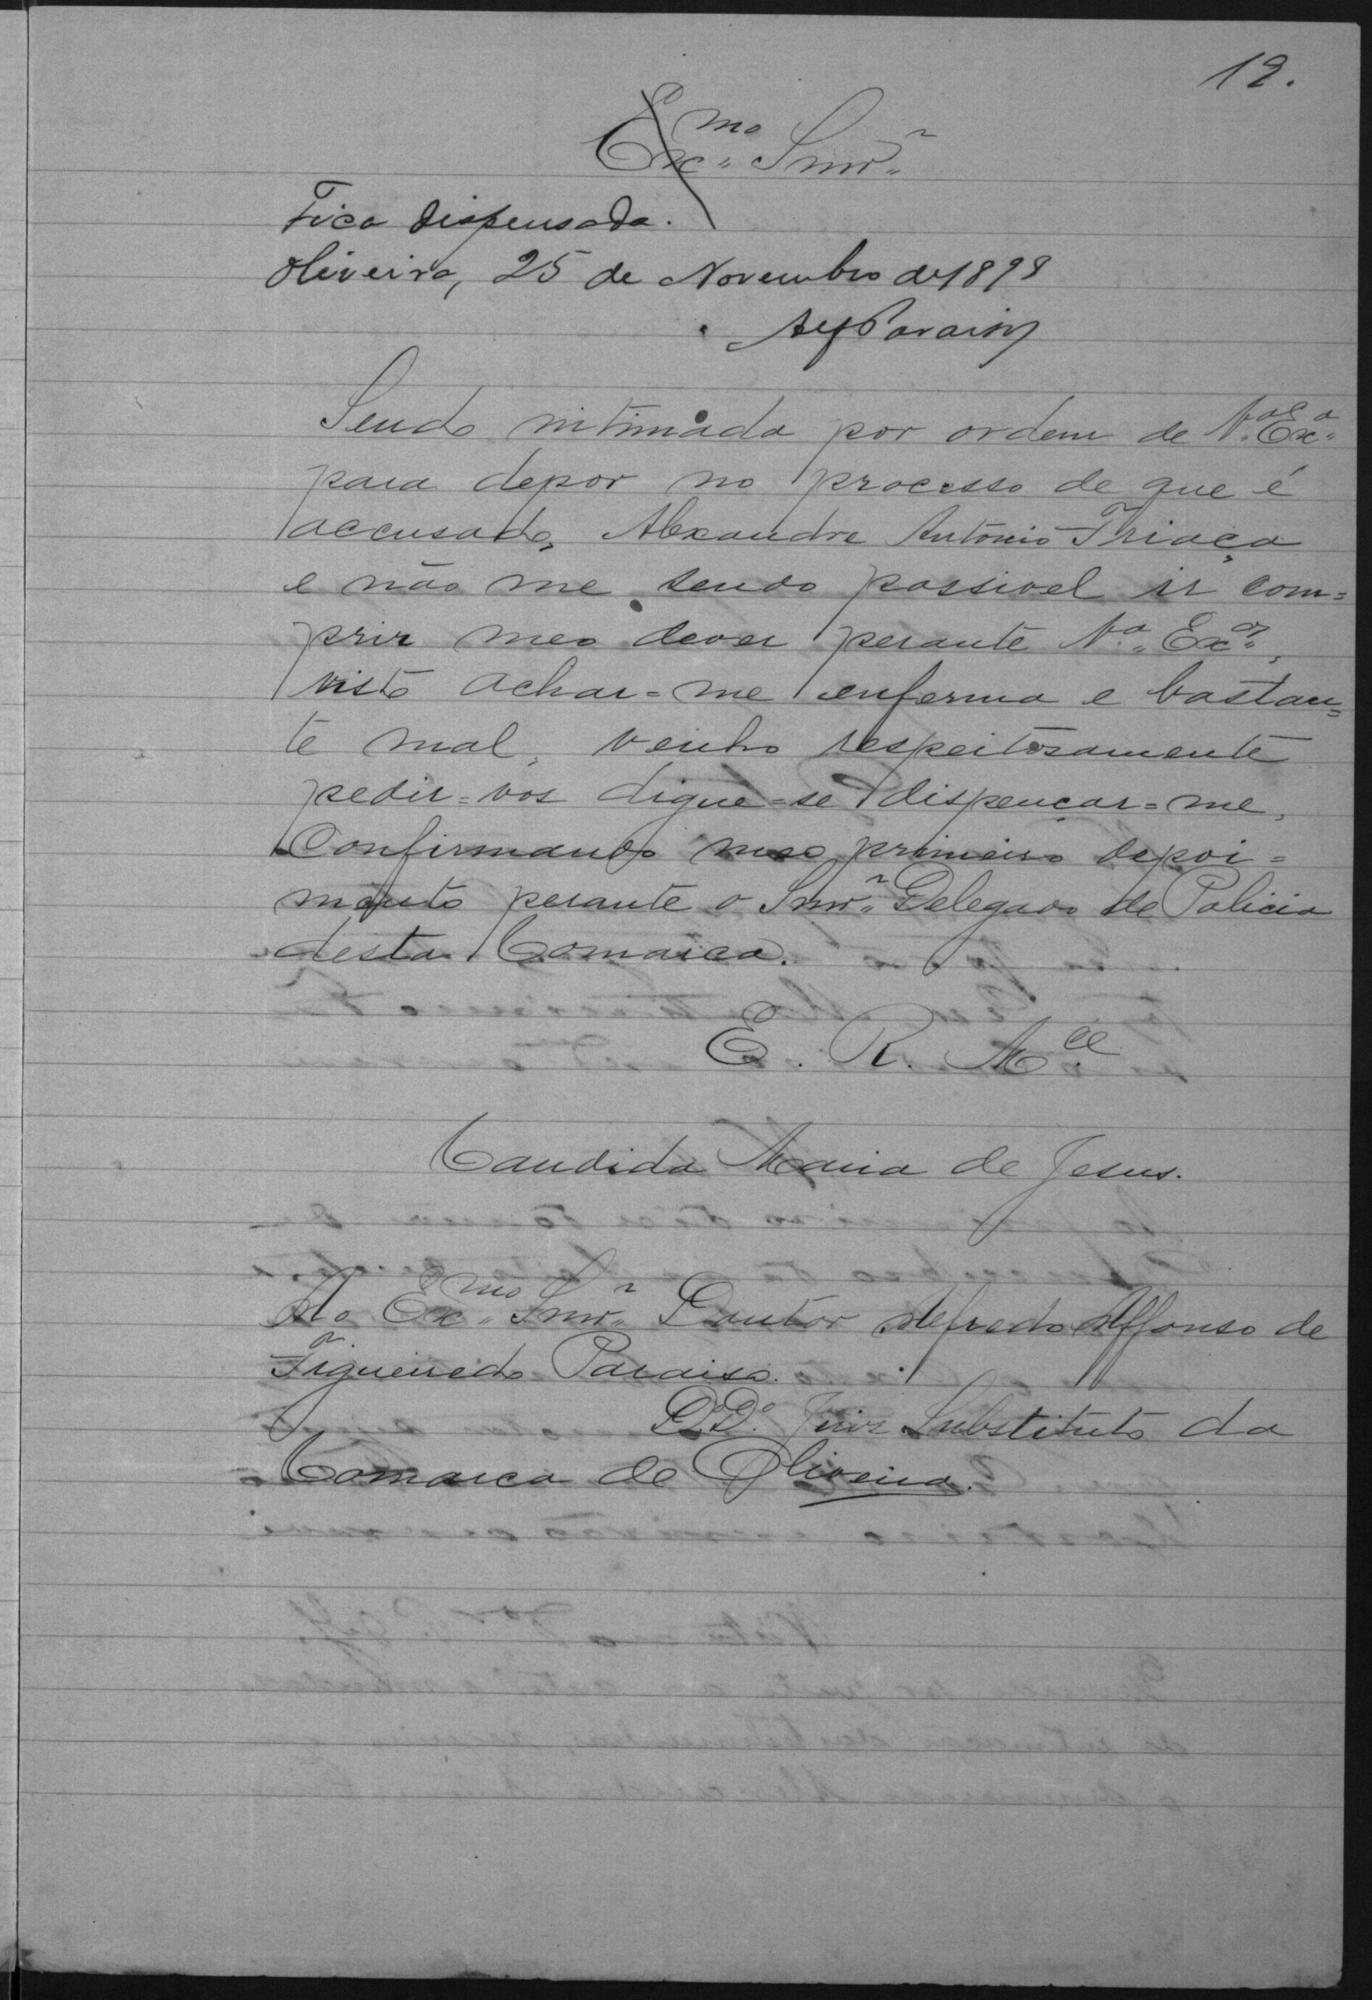 12.
Exc.mo Smr.
Fica dispensada.
Oliveira, 25 de Novembro de 1898
Sendo intimada por ordem de V.a Exc.a
para depor no processo de que é
accusado, Alexandre Antonio Friaça
e não me sendo possivel ir com=
prir meo dever perante V.a Exc.a,
visto achar=me enferma e bastan=
te mal, venho respeitosamente
pedir=vos digne=se dispençar=me,
Confirmando meo primeiro depoi=
mento perante o Smr. Delegado de Policia
desta Comarca.
E. R. M.ce
Candida Maria de Jesus.
Ao Exc.mo Smr. Doutor Alfredo Affonso de
Figueiredo Paraiso.
D.D. Juiz Substituto da
Comarca de Oliveira.